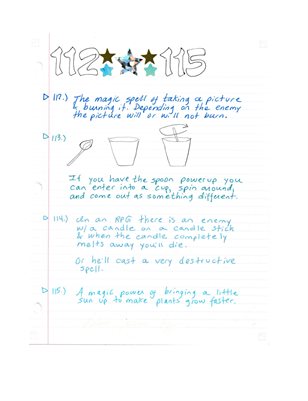 112 115
112.) The magic spell of taking a picture
& burning it. Depending on the enemy
the picture will or will not burn.
113.)
If you have the spoon powerup you
can enter into a cup, spin around,
and come out as something different.
114.) In an RPG there is an enemy
w/ a candle on a candle stick
& when the candle completely
melts away you'll die.
Or he'll cast a very destructive
spell.
115.) A magic power of bringing a little
sun up to make plants grow faster.